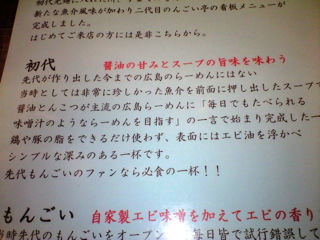 新たな魚介風味が加わり二代目のんごい亭の看板メニューが
完成しました。
はじめてご来店の方には是非こちらから。
初代 醤油の甘みとスープの旨味を味わう
先代が作り出した今までの広島のらーめんにはない
当時としては非常に珍しかった魚介を前面に押し出したスープ
醤油とんこつが主流の広島らーめんに「毎日でもたべられる
味噌汁のようならーめんを目指す」の一言で始まり完成した一
鶏や豚の脂をできるだけ使わず、表面にはエビ油を浮かべ
シンプルな深みのある一杯です。
先代もんごいのファンなら必食の一杯！！
もんごい 自家製エビ味噌を加えてエビの香り
当時先代のもんごいをオープン 毎日皆で試行錯誤して